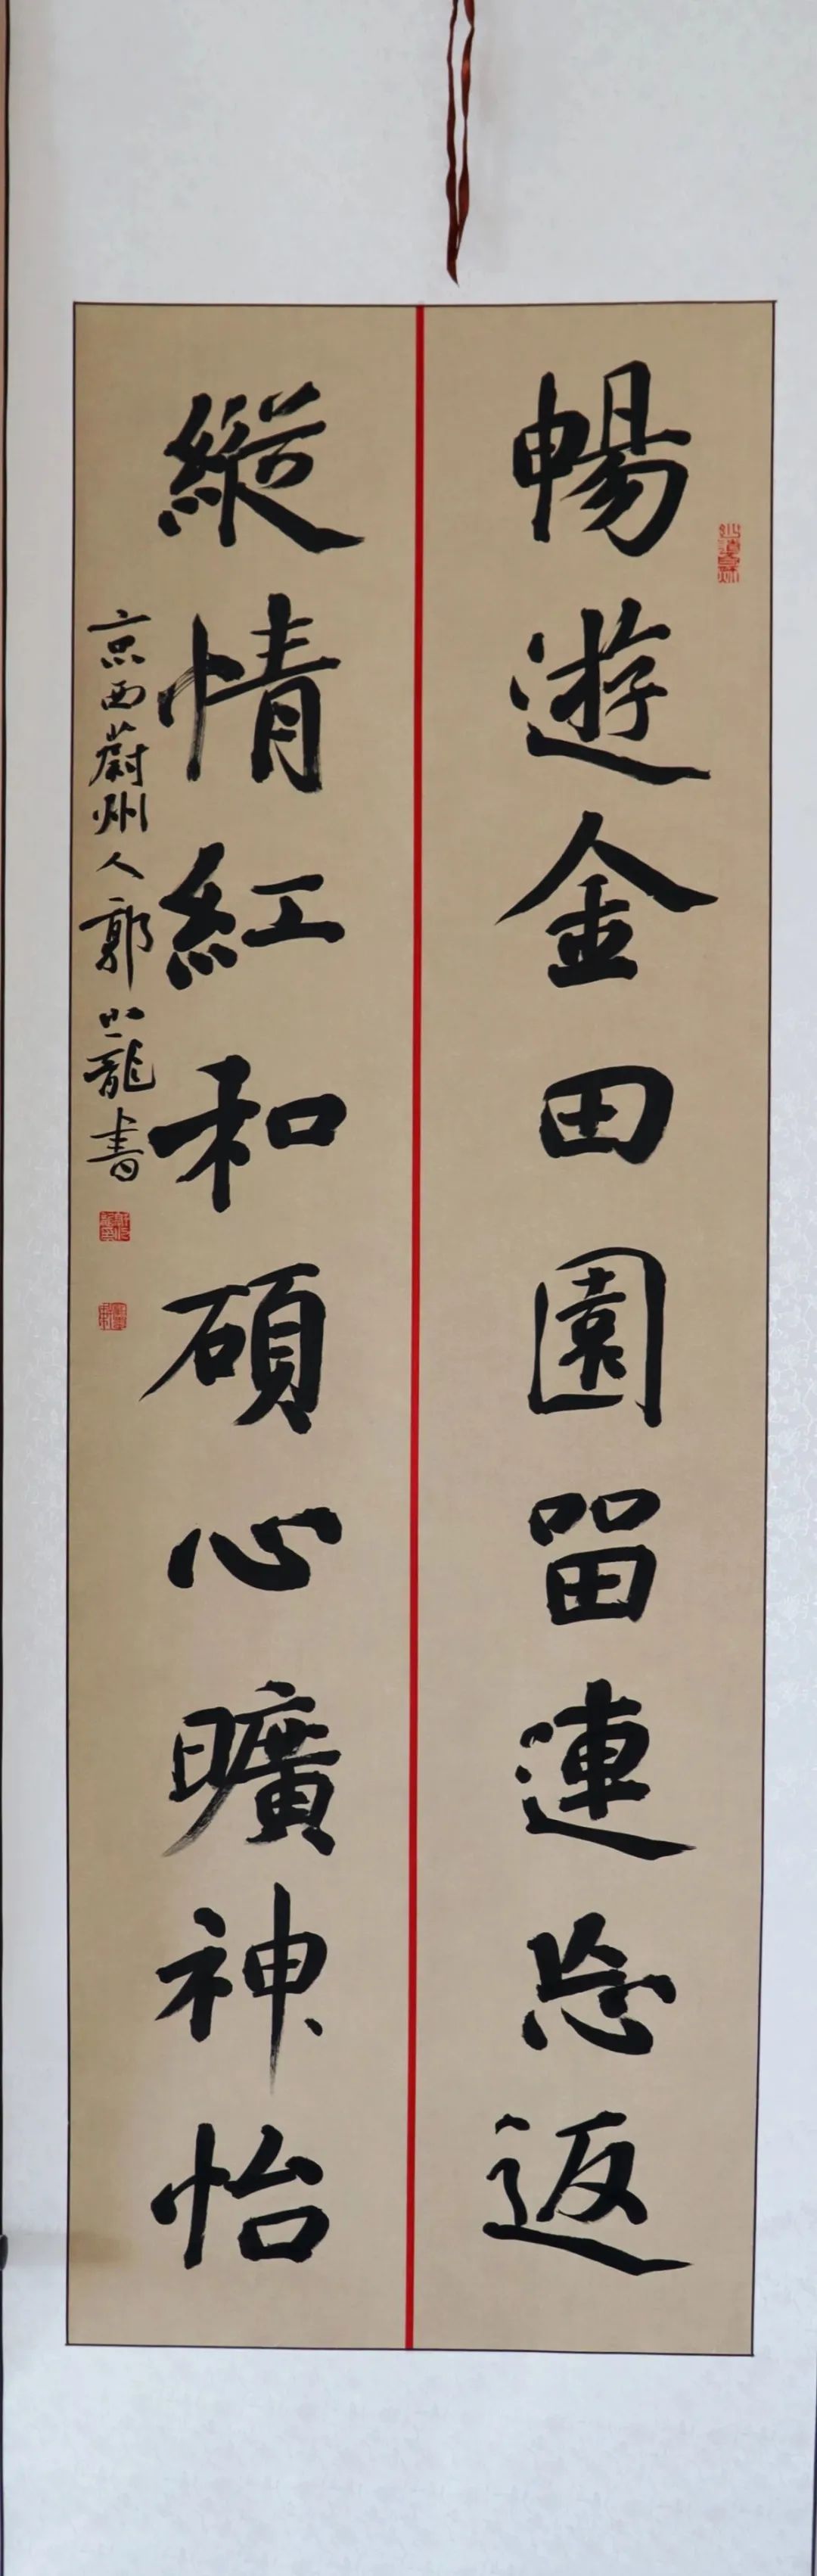 暢遊金田園留連忘返
縱情紅和碩心曠神怡
京西蔚州人郭山龍書